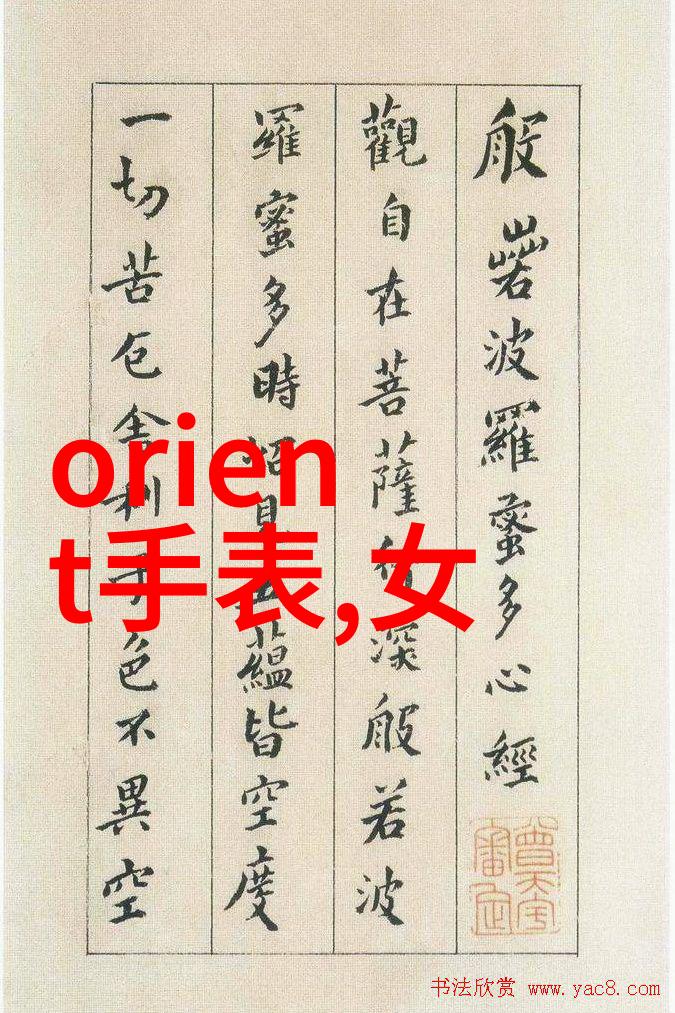 般若波羅蜜多心經
觀自在菩薩行深般若波
羅蜜多時照見五蘊皆空度
一切苦厄舍利子色不異空
orien
t手表,女
书法欣赏 www.yac8.com